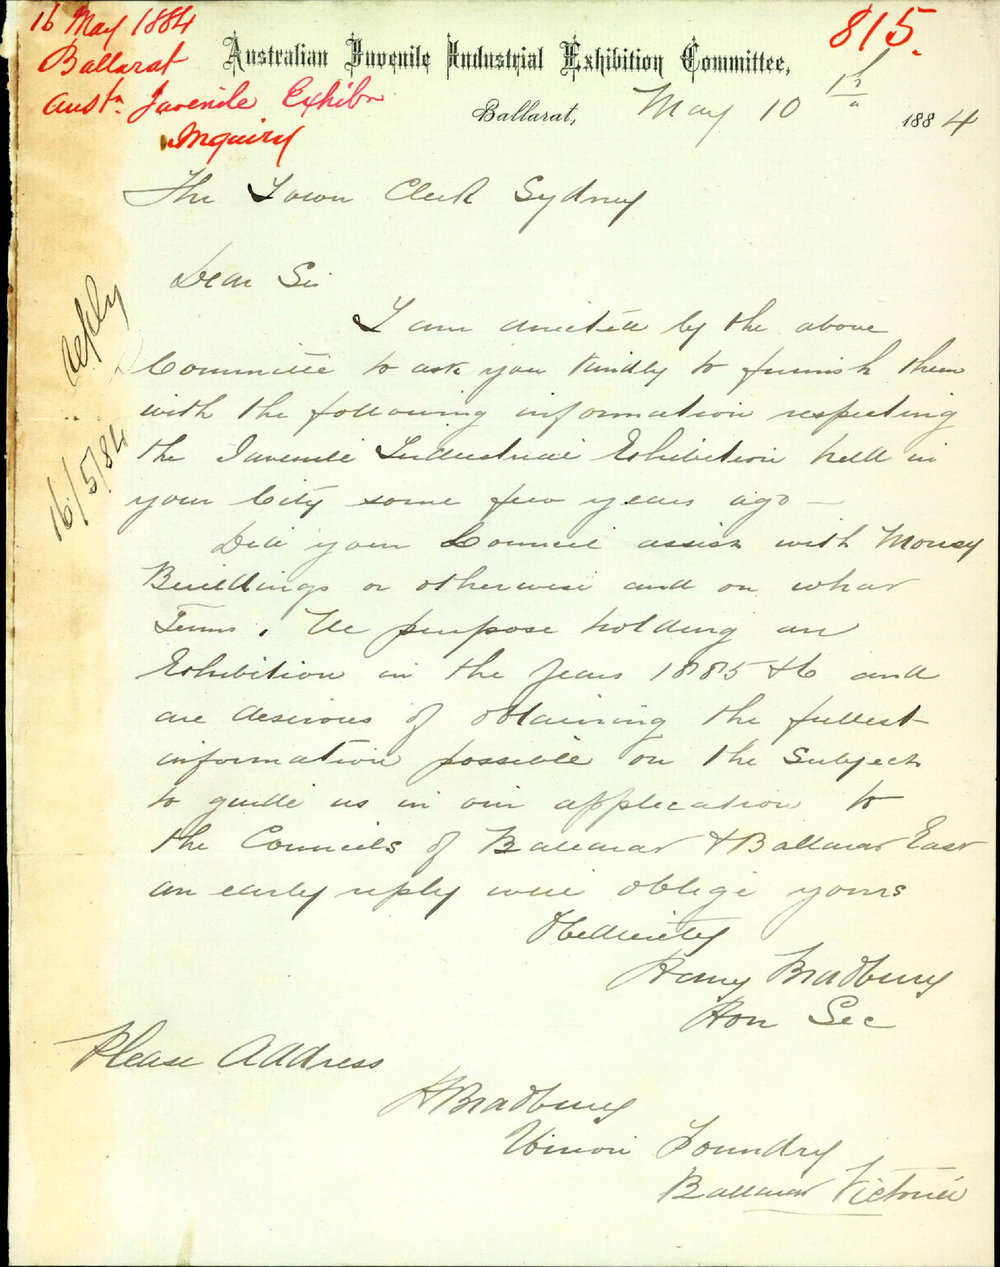 16 May 1884
Ballarat
Austn. Juvenile Exhibn
Inquiry
815.
Australian Juvenile Industrial Exhibition Committee,
Ballarat, May 10th 1884
The Town Clerk Sydney
Dear Sir
I am directed by the above
Committee to ask you kindly to furnish them
with the following information respecting
the Juvenile Industrial Exhibition held in
your City some few years ago —
Did your Council assist with Money
Buildings or otherwise and on what
Terms. We purpose holding an
Exhibition in the years 1885 & 6 and
are desirous of obtaining the fullest
information possible on the Subject
to guide us in our application to
the Councils of Ballarat & Ballarat East
an early reply will oblige yours
Obediently
Harry Bradbury
Hon Sec
Please Address
H Bradbury
Union Foundry
Ballarat Victoria
reply
16/5/84